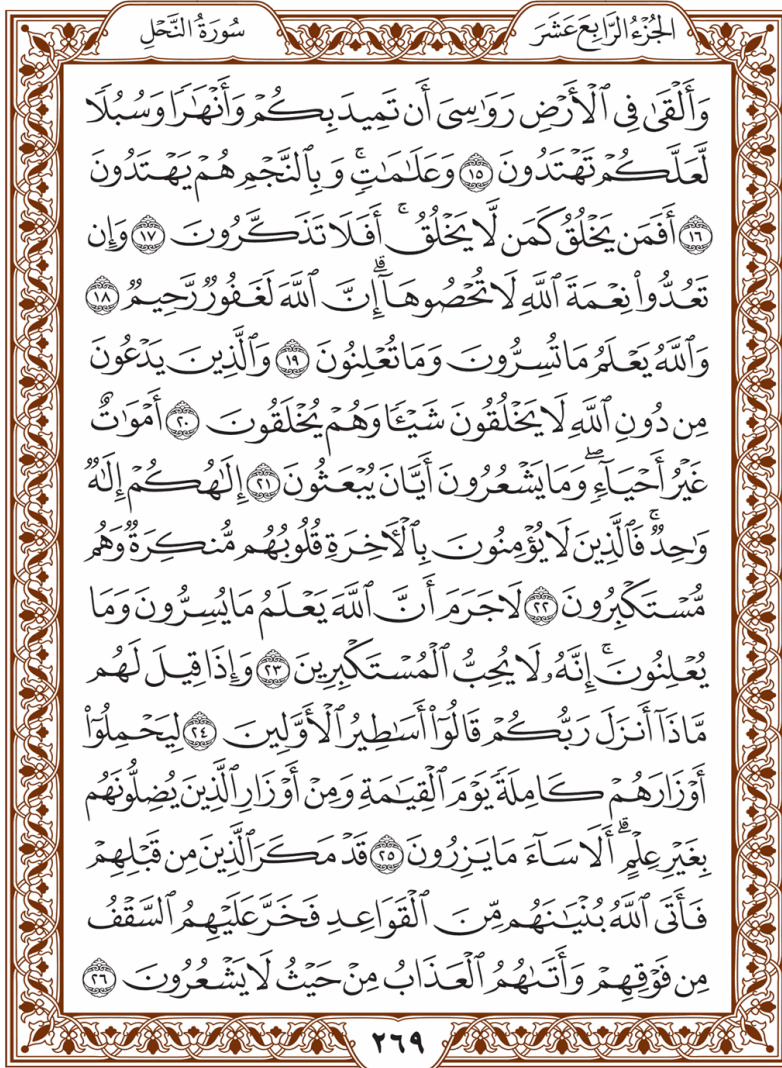 الجُزْءُ الرَّابِعَ عَشَرَ
سُورَةُ النَّحْلِ
وَأَلْقَىٰ فِى ٱلْأَرْضِ رَوَٰسِىَ أَن تَمِيدَ بِكُمْ وَأَنْهَٰرًا وَسُبُلًا
لَّعَلَّكُمْ تَهْتَدُونَ ١٥ وَعَلَٰمَٰتٍۚ وَبِٱلنَّجْمِ هُمْ يَهْتَدُونَ
١٦ أَفَمَن يَخْلُقُ كَمَن لَّا يَخْلُقُۚ أَفَلَا تَذَكَّرُونَ ١٧ وَإِن
تَعُدُّوا۟ نِعْمَةَ ٱللَّهِ لَا تُحْصُوهَآۗ إِنَّ ٱللَّهَ لَغَفُورٌ رَّحِيمٌ ١٨
وَٱللَّهُ يَعْلَمُ مَا تُسِرُّونَ وَمَا تُعْلِنُونَ ١٩ وَٱلَّذِينَ يَدْعُونَ
مِن دُونِ ٱللَّهِ لَا يَخْلُقُونَ شَيْـًٔا وَهُمْ يُخْلَقُونَ ٢٠ أَمْوَٰتٌ
غَيْرُ أَحْيَآءٍۖ وَمَا يَشْعُرُونَ أَيَّانَ يُبْعَثُونَ ٢١ إِلَٰهُكُمْ إِلَٰهٌ
وَٰحِدٌۚ فَٱلَّذِينَ لَا يُؤْمِنُونَ بِٱلْـَٔاخِرَةِ قُلُوبُهُم مُّنكِرَةٌ وَهُم
مُّسْتَكْبِرُونَ ٢٢ لَا جَرَمَ أَنَّ ٱللَّهَ يَعْلَمُ مَا يُسِرُّونَ وَمَا
يُعْلِنُونَۚ إِنَّهُۥ لَا يُحِبُّ ٱلْمُسْتَكْبِرِينَ ٢٣ وَإِذَا قِيلَ لَهُم
مَّاذَآ أَنزَلَ رَبُّكُمْ قَالُوٓا۟ أَسَٰطِيرُ ٱلْأَوَّلِينَ ٢٤ لِيَحْمِلُوٓا۟
أَوْزَارَهُمْ كَامِلَةً يَوْمَ ٱلْقِيَٰمَةِ وَمِنْ أَوْزَارِ ٱلَّذِينَ يُضِلُّونَهُم
بِغَيْرِ عِلْمٍۗ أَلَا سَآءَ مَا يَزِرُونَ ٢٥ قَدْ مَكَرَ ٱلَّذِينَ مِن قَبْلِهِمْ
فَأَتَى ٱللَّهُ بُنْيَٰنَهُم مِّنَ ٱلْقَوَاعِدِ فَخَرَّ عَلَيْهِمُ ٱلسَّقْفُ
مِن فَوْقِهِمْ وَأَتَىٰهُمُ ٱلْعَذَابُ مِنْ حَيْثُ لَا يَشْعُرُونَ ٢٦
٢٦٩